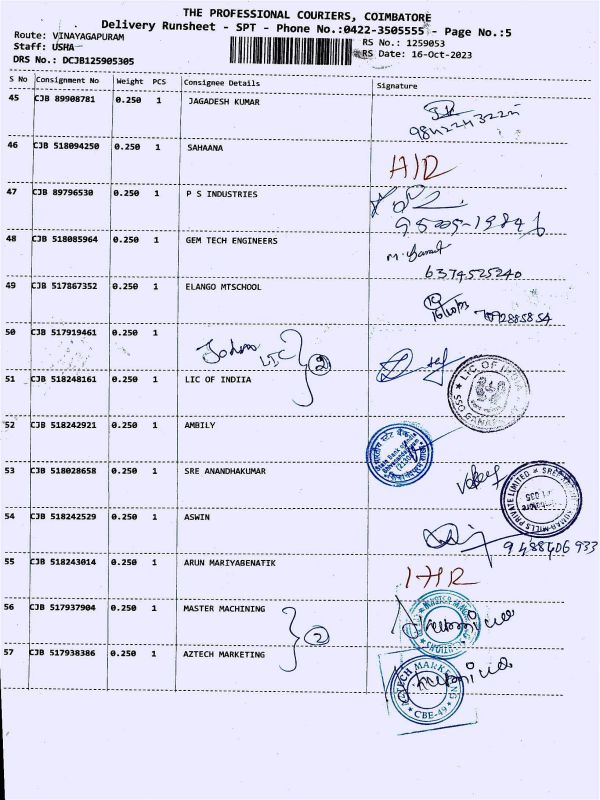 THE PROFESSIONAL COURIERS, COIMBATORE
Delivery Runsheet - SPT - Phone No.:0422-3505555 - Page No.:5
Route: VINAYAGAPURAM
RS No.: 1259053
Staff: USHA
RS Date: 16-Oct-2023
DRS No.: DCJB125905305
S No Consignment No Weight PCS Consignee Details Signature
45 CJB 89908781 0.250 1 JAGADESH KUMAR
46 CJB 518094250 0.250 1 SAHAANA
47 CJB 89796530 0.250 1 P S INDUSTRIES
48 CJB 518085964 0.250 1 GEM TECH ENGINEERS
6374525240
49 CJB 517867352 0.250 1 ELANGO MTSCHOOL
50 CJB 517919461 0.250 1
LIC 2
51 CJB 518248161 0.250 1 LIC OF INDIIA
LIC OF
52 CJB 518242921 0.250 1 AMBILY
53 CJB 518028658 0.250 1 SRE ANANDHAKUMAR
MILLS PRIVATE LIMITED
54 CJB 518242529 0.250 1 ASWIN
9488406933
55 CJB 518243014 0.250 1 ARUN MARIYABENATIK
56 CJB 517937904 0.250 1 MASTER MACHINING
MASTER
2
57 CJB 517938386 0.250 1 AZTECH MARKETING
AZTECH MARKETING
CBE-49